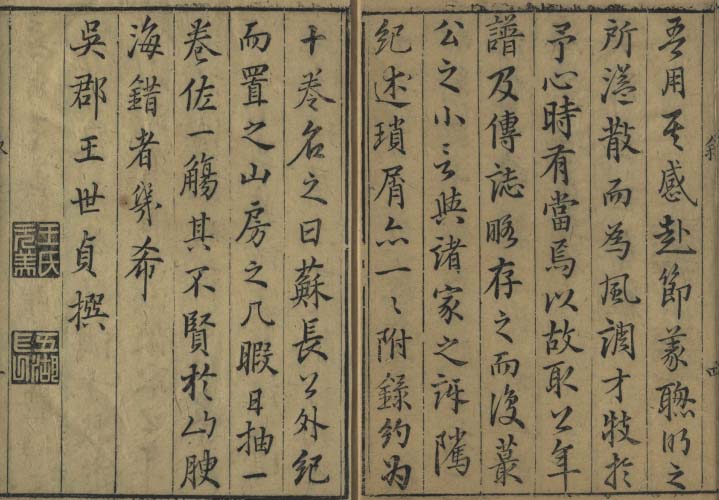 吾用其感赴節義聰明之
所溢散而為風調才技於
予心時有當焉以故取公年
譜及傳誌略存之而復蒐
公之小言與諸家之評隲
紀述瑣屑亦一一附錄約為
十卷名之曰蘇長公外紀
而置之山房之几暇日抽一
卷佐一觴其不賢於山腴
海錯者幾希
吳郡王世貞撰
王氏元美